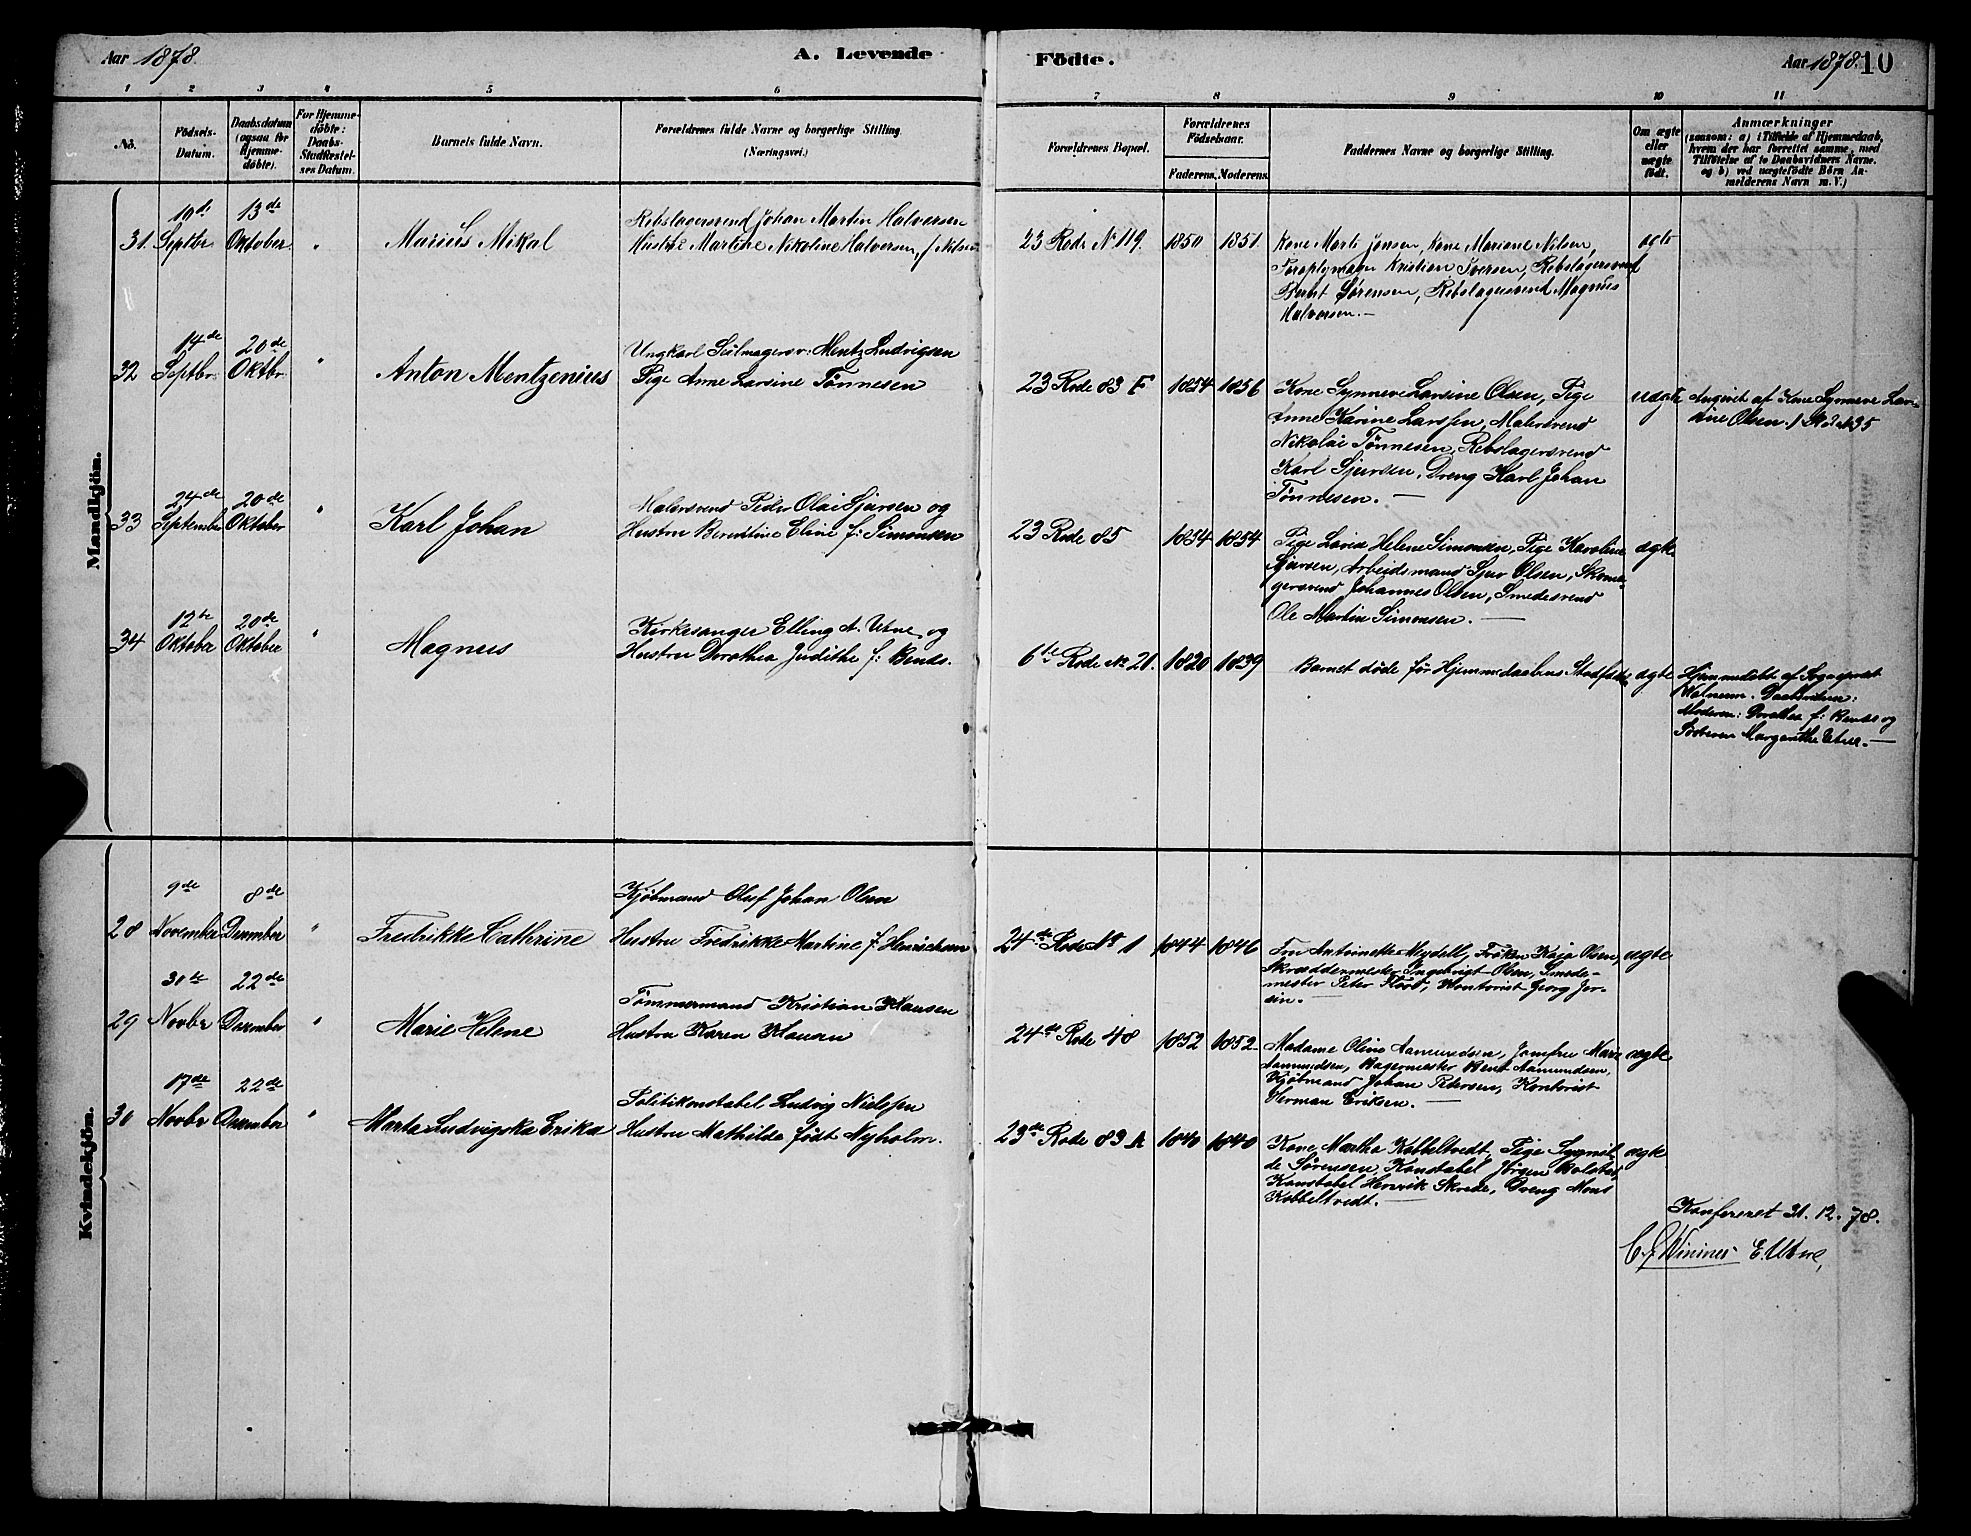 Aar 1878. A. Levende Fødte. Aar 1878. 10
1 2 3 4 5 6 7 8 9 10 11
No. Födsels-Datum. Daabsdatum (ogsaa for Hjemme-döbte). For Hjemme-döbte: Daabs-Stadfæstel-ses Datum. Barnets fulde Navn. Forældrenes fulde Navne og borgerlige Stilling (Næringsvei.) Forældrenes Bopæl. Forældrenes Födselsaar. Faderens. Moderens. Faddernes Navne og borgerlige Stilling. Om ægte eller uægte født.
Anmærkninger
(saasom: a) i Tilfælde af Hjemmedaab,
hvem der har forrettet samme, med
Tilföielse af to Daabsvidners Navne.
og b) ved uægtefödte Börn An-
melderens Navn m. V.)
Mandkjön.
19de 13de Rebslagersvend Johan Martin Halvorsen
31. Septbr Oktober " Marius Mikal Hustru Martine Nikoline Halvorsen, f. Nilsen 23 Rode No 119. 1850 1851 Kone Marti Jensen, Kone Mariane Nilsen, ægte
Kristian Iversen, Rebslagersvend
Bernt Sørensen, Rebslagersvend Magnus
Halvorsen.—
14de 20de Ungkarl Seilmagersv: Mentz Ludvigsen
32 Septbr Oktbr " Anton Mentzenius Pige Anne Larsine Tönnesen 23 Rode 83 F 1854 1856 Kone Synneve Larsine Olsen, Pige uægte Angivet af Kone Synneve Lar-
Anne Karine Larssen, Malersvend sine Olsen
Nikolai Tönnesen, Rebslagersvend
Karl Sjursen, Dreng Karl Johan
Tönnesen.—
24de 20de Malersvend Peder Olai Sjursen og
33 September Oktober " Karl Johan Hustru Berentine Eline f: Simonsen 23 Rode 85 1854 1854 Pige Lovise Helene Simonsen, Pige Karoline ægte
Sjursen, Arbeidsmand Sjur Olsen, Skoma-
gersvend Johannes Olsen, Smedesvend
Ole Martin Simonsen.—
12te 20de Kirkesanger Elling A. Utne og
34 Oktober Oktober " Magnus Hustru Dorothea Judithe f: Bends. 6te Rode No 21. 1820 1839 Barnet døde før Hjemmedaabens Stadf. ægte Hjemmedøbt af Sogneprest
Daabsvidner:
Moderen: Dorothea f: Bends og
Søsteren Margarethe Utne.—
Kvindekjön.
9de 8de Kjöbmand Oluf Johan Olsen
28 November Dezember " Fredrikke Cathrine Hustru Fredrikke Martine f. Henrichsen 24de Rode No 1 1844 1846 Fru Antoinette Meydell, Frøken Kaja Olsen, ægte
Skræddermester Ingebrigt Olsen, Smede-
mester Peter Fløod, Kontorist Georg Jor-
sin.—
30te 22de Tömmermand Kristian Hansen
29 Novbr Dezember " Marie Helene Hustru Karen Hansen 24de Rode 48 1852 1852 Madame Oline Aamundsen, Jomfru Marie ægte
Aamundsen, Bagermester Bent Aamundsen,
Kjöbmand Johan Petersen, Kontorist
Herman Eriksen.—
17de 22de Politikonstabel Ludvig Nielssen
30 Novbr Dezember " Marta Ludvigska Erika Hustru Mathilde født Nyholm. 23de Rode 83 A 1840 1840 Kone Martha Kobbeltvedt, Pige Synnil- ægte
de Sørensen, Konstabel Jørgen Bolstad,
Konstabel Henrik Skrede, Dreng Mons
Kobbeltvedt.—
Konfereret 31. 12. 78.
E. Utne,